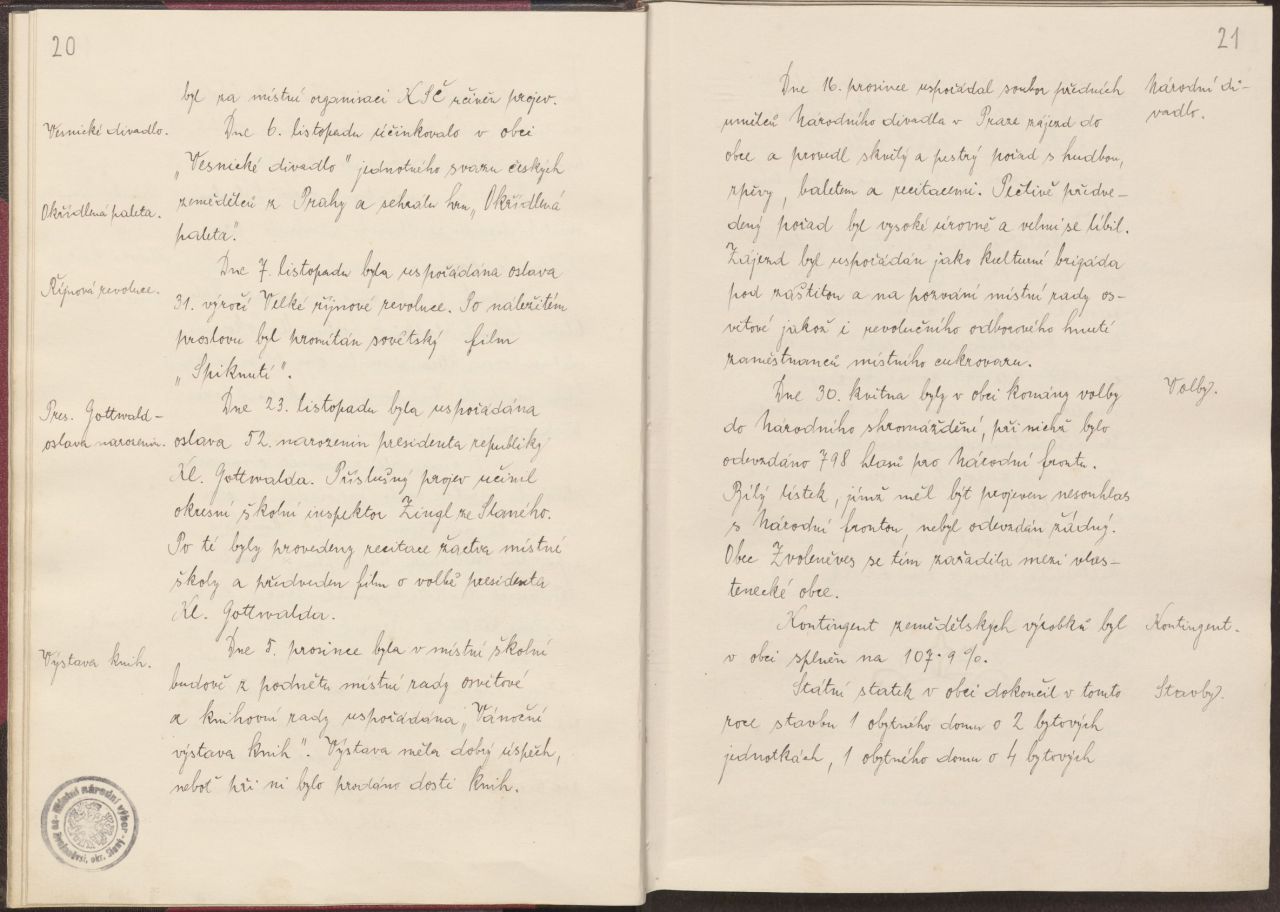 20
byl za místní organisaci KSČ učiněn projev.
Vesnické divadlo.
Dne 6. listopadu účinkovalo v obci
„Vesnické divadlo" jednotného svazu českých
zemědělců z Prahy a sehrálo hru „Okřídlená
Okřídlená paleta.
paleta".
Dne 7. listopadu byla uspořádána oslava
Říjnová revoluce.
31. výročí Velké říjnové revoluce. Po náležitém
proslovu byl promítán sovětský film
„Spiknutí".
Dne 23. listopadu byla uspořádána
Pres. Gottwald-
oslava narozenin.
oslava 52. narozenin presidenta republiky
Kl. Gottwalda. Příslušný projev učinil
okresní školní inspektor Zingl ze Slaného.
Po té byly provedeny recitace žactva místní
školy a předveden film o volbě presidenta
Kl. Gottwalda.
Dne 5. prosince byla v místní školní
Výstava knih.
budově z podnětu místní rady osvětové
a knihovní rady uspořádána „Vánoční
výstava knih". Výstava měla dobrý úspěch,
neboť při ní bylo prodáno dosti knih.
Místní národní výbor
ve Zvoleněvsi, okr. Slaný
21
Dne 16. prosince uspořádal soubor předních
Národní di-
vadlo.
umělců Národního divadla v Praze zájezd do
obce a provedl skvělý a pestrý pořad s hudbou,
zpěvy, baletem a recitacemi. Pečlivě předve-
dený pořad byl vysoké úrovně a velmi se líbil.
Zájezd byl uspořádán jako kulturní brigáda
pod záštitou a na pozvání místní rady os-
větové jakož i revolučního odborového hnutí
zaměstnanců místního cukrovaru.
Dne 30. května byly v obci konány volby
Volby.
do Národního shromáždění, při nichž bylo
odevzdáno 798 hlasů pro Národní frontu.
Bílý lístek, jímž měl být projeven nesouhlas
s Národní frontou, nebyl odevzdán žádný.
Obec Zvoleněves se tím zařadila mezi vlas-
tenecké obce.
Kontingent zemědělských výrobků byl
Kontingent.
v obci splněn na 107·9 %.
Státní statek v obci dokončil v tomto
Stavby.
roce stavbu 1 obytného domu o 2 bytových
jednotkách, 1 obytného domu o 4 bytových